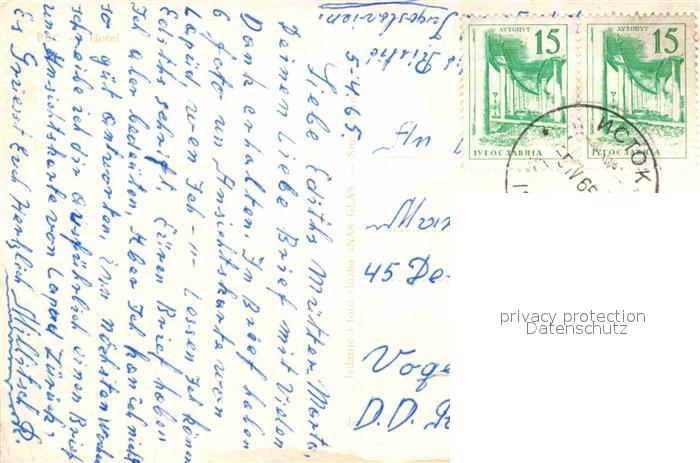 PEĆ Hotel
5-4.65
Liebe Ediths Mutter, Marta,
Deinen Liebe Brief mit Vielen
Dank erhalten. In Brief haben
6 foto un Ansichtskarte von
Lapad, wen Jch -u- Leisen Jch könen
Ediths schrift Euren Brief haben
Jch aber bedeiten, Aber Jch kan nich
so gut antworten, inn nächsten wochen
schreibe ich dir ausführlich einen Brief
un Ansichtskarte von Lapad Zurück,
Es Grüsst Euch Herzlich Millitsch R.
Ristić
Jugoslavien.
Izdanje i foto služba »NAŠ GLAS«
An
45 De-
Voge
D.D.R
АУТОПУТ 15
ЈУГОСЛАВИЈА
АУТОПУТ 15
ЈУГОСЛАВИЈА
ИСТОК
privacy protection
Datenschutz